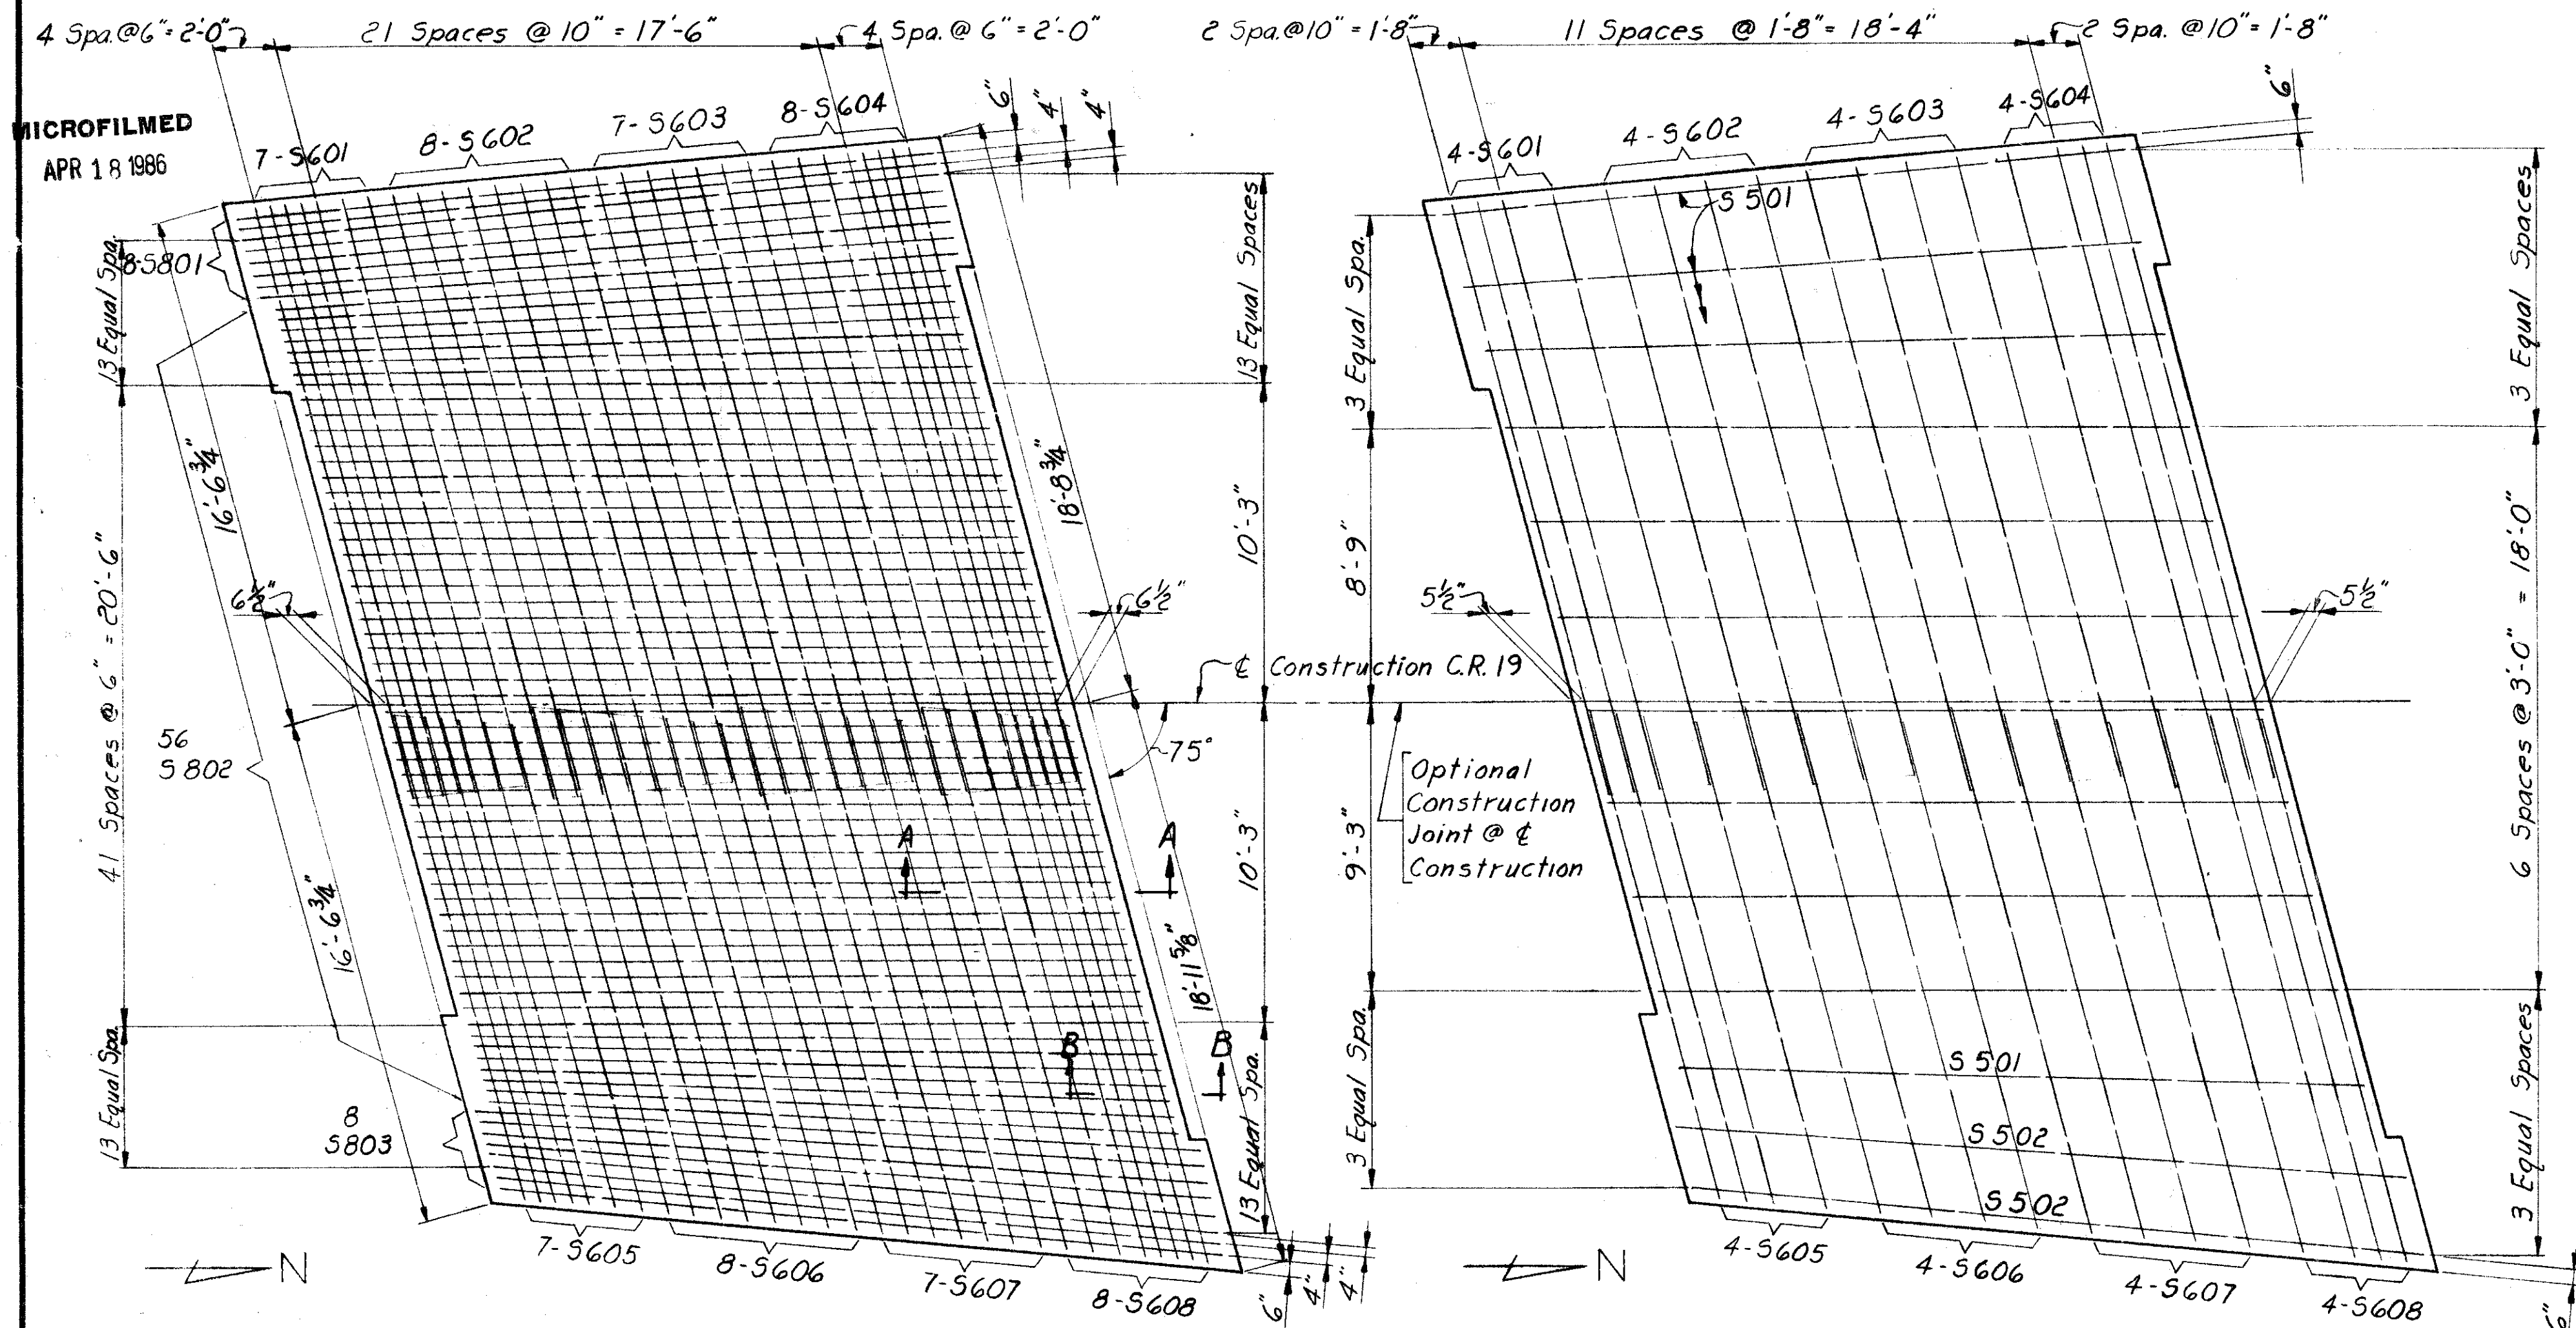 4 Spa.@6"=2'-0"
21 Spaces @ 10" = 17'-6"
4 Spa. @ 6" = 2'-0"
2 Spa.@10" = 1'-8"
11 Spaces @ 1'-8" = 18'-4"
2 Spa. @10" = 1'-8"
MICROFILMED
APR 18 1986
7-S601
8-S602
7-S603
8-S604
6"
4"
4"
4-S601
4-S602
4-S603
4-S604
6"
S 501
8-S801
13 Equal Spa.
13 Equal Spaces
3 Equal Spa.
3 Equal Spaces
16'-6 3/4"
18'-8 3/4"
10'-3"
8'-9"
41 Spaces @ 6" = 20'-6"
6 Spaces @ 3'-0" = 18'-0"
6 1/2"
6 1/2"
5 1/2"
5 1/2"
℄ Construction C.R. 19
75°
56
S 802
Optional
Construction
Joint @ ℄
Construction
A
A
10'-3"
9'-3"
16'-6 3/4"
18'-11 5/8"
B
B
13 Equal Spa.
13 Equal Spa.
3 Equal Spa.
3 Equal Spaces
8
S803
S 501
S 502
S 502
N
7-S605
8-S606
7-S607
8-S608
6"
4"
4"
N
4-S605
4-S606
4-S607
4-S608
6"